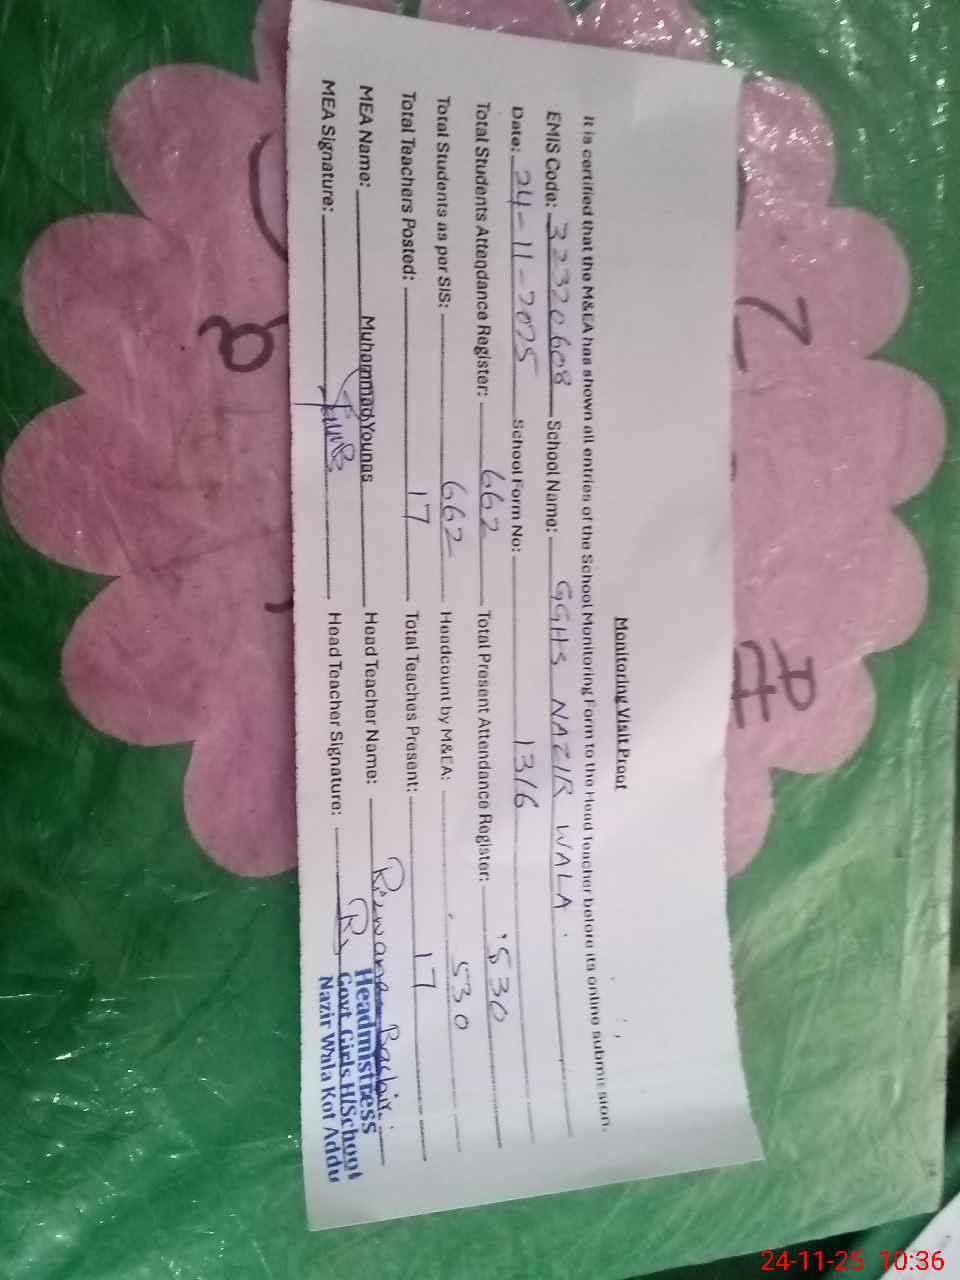 Monitoring Visit Proof
It is certified that the M&EA has shown all entries of the School Monitoring Form to the Head Teacher before its online submission.
EMIS Code: 32320608 School Name: GGHS NAZIR WALA.
Date: 24-11-2025 School Form No: 1316
Total Students Attendance Register: 662 Total Present Attendance Register: 530
Total Students as per SIS: 662 Headcount by M&EA: 530
Total Teachers Posted: 17 Total Teaches Present: 17
MEA Name: Muhammad Younas Head Teacher Name: Rizwana Bashir
MEA Signature: Head Teacher Signature:
Headmistress
Govt. Girls H/School
Nazir Wala Kot Addu
24-11-25 10:36